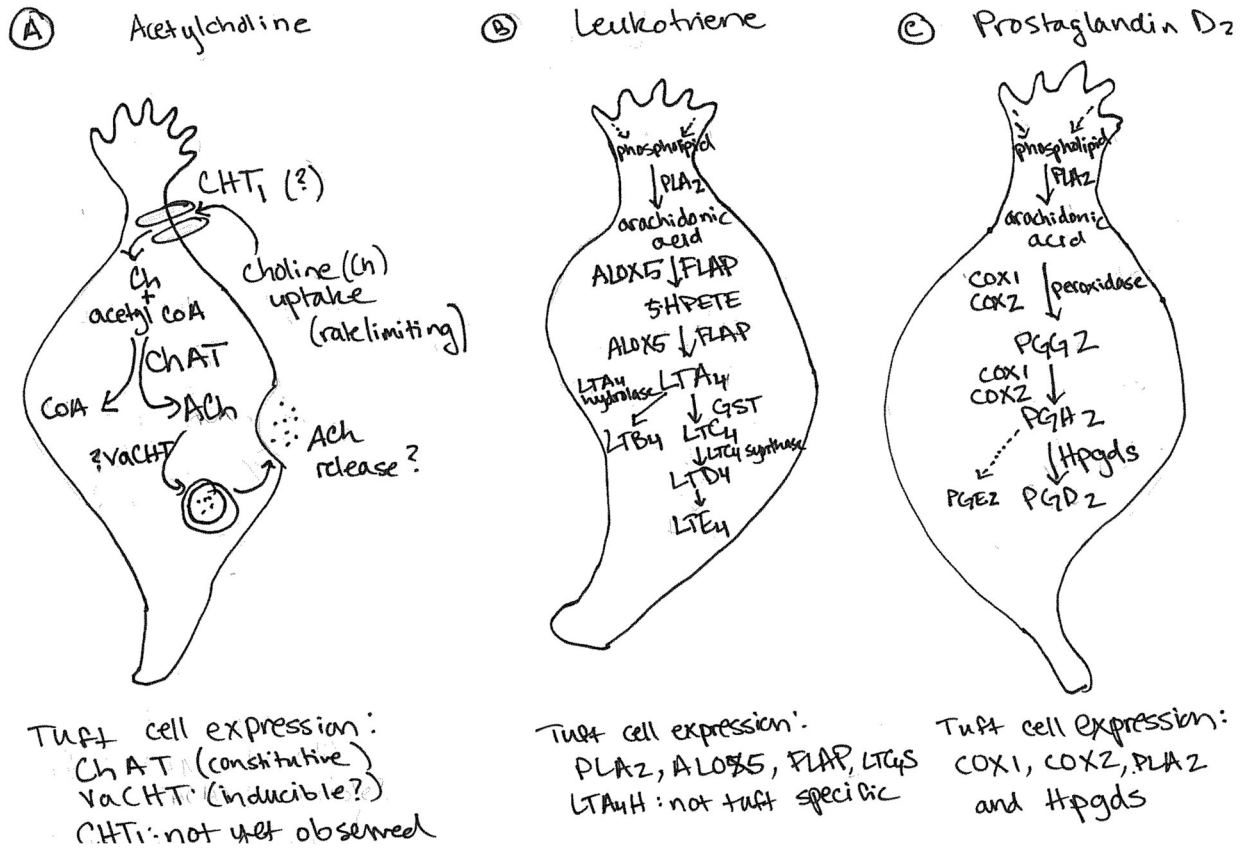 Ⓐ Acetylcholine
CHT₁ (?)
Choline (Ch)
uptake
(rate limiting)
Ch
+
acetyl CoA
ChAT
CoA
ACh
?VaCHT
ACh
release?
Tuft cell expression:
ChAT (constitutive)
VaCHT: (inducible?)
CHT₁: not yet observed
Ⓑ Leukotriene
phospholipid
PLA2
arachidonic
acid
ALOX5 FLAP
5-HPETE
ALOX5 FLAP
LTA4
hydrolase
LTA4
GST
LTB4
LTC4
LTC4 synthase
LTD4
LTE4
Tuft cell expression:
PLA2, ALOX5, FLAP, LTC4S
LTA4H: not tuft specific
Ⓒ Prostaglandin D2
phospholipid
PLA2
arachidonic
acid
COX1
COX2
peroxidase
PGG2
COX1
COX2
PGH2
Hpgds
PGE2 PGD2
Tuft cell expression:
COX1, COX2, PLA2
and Hpgds